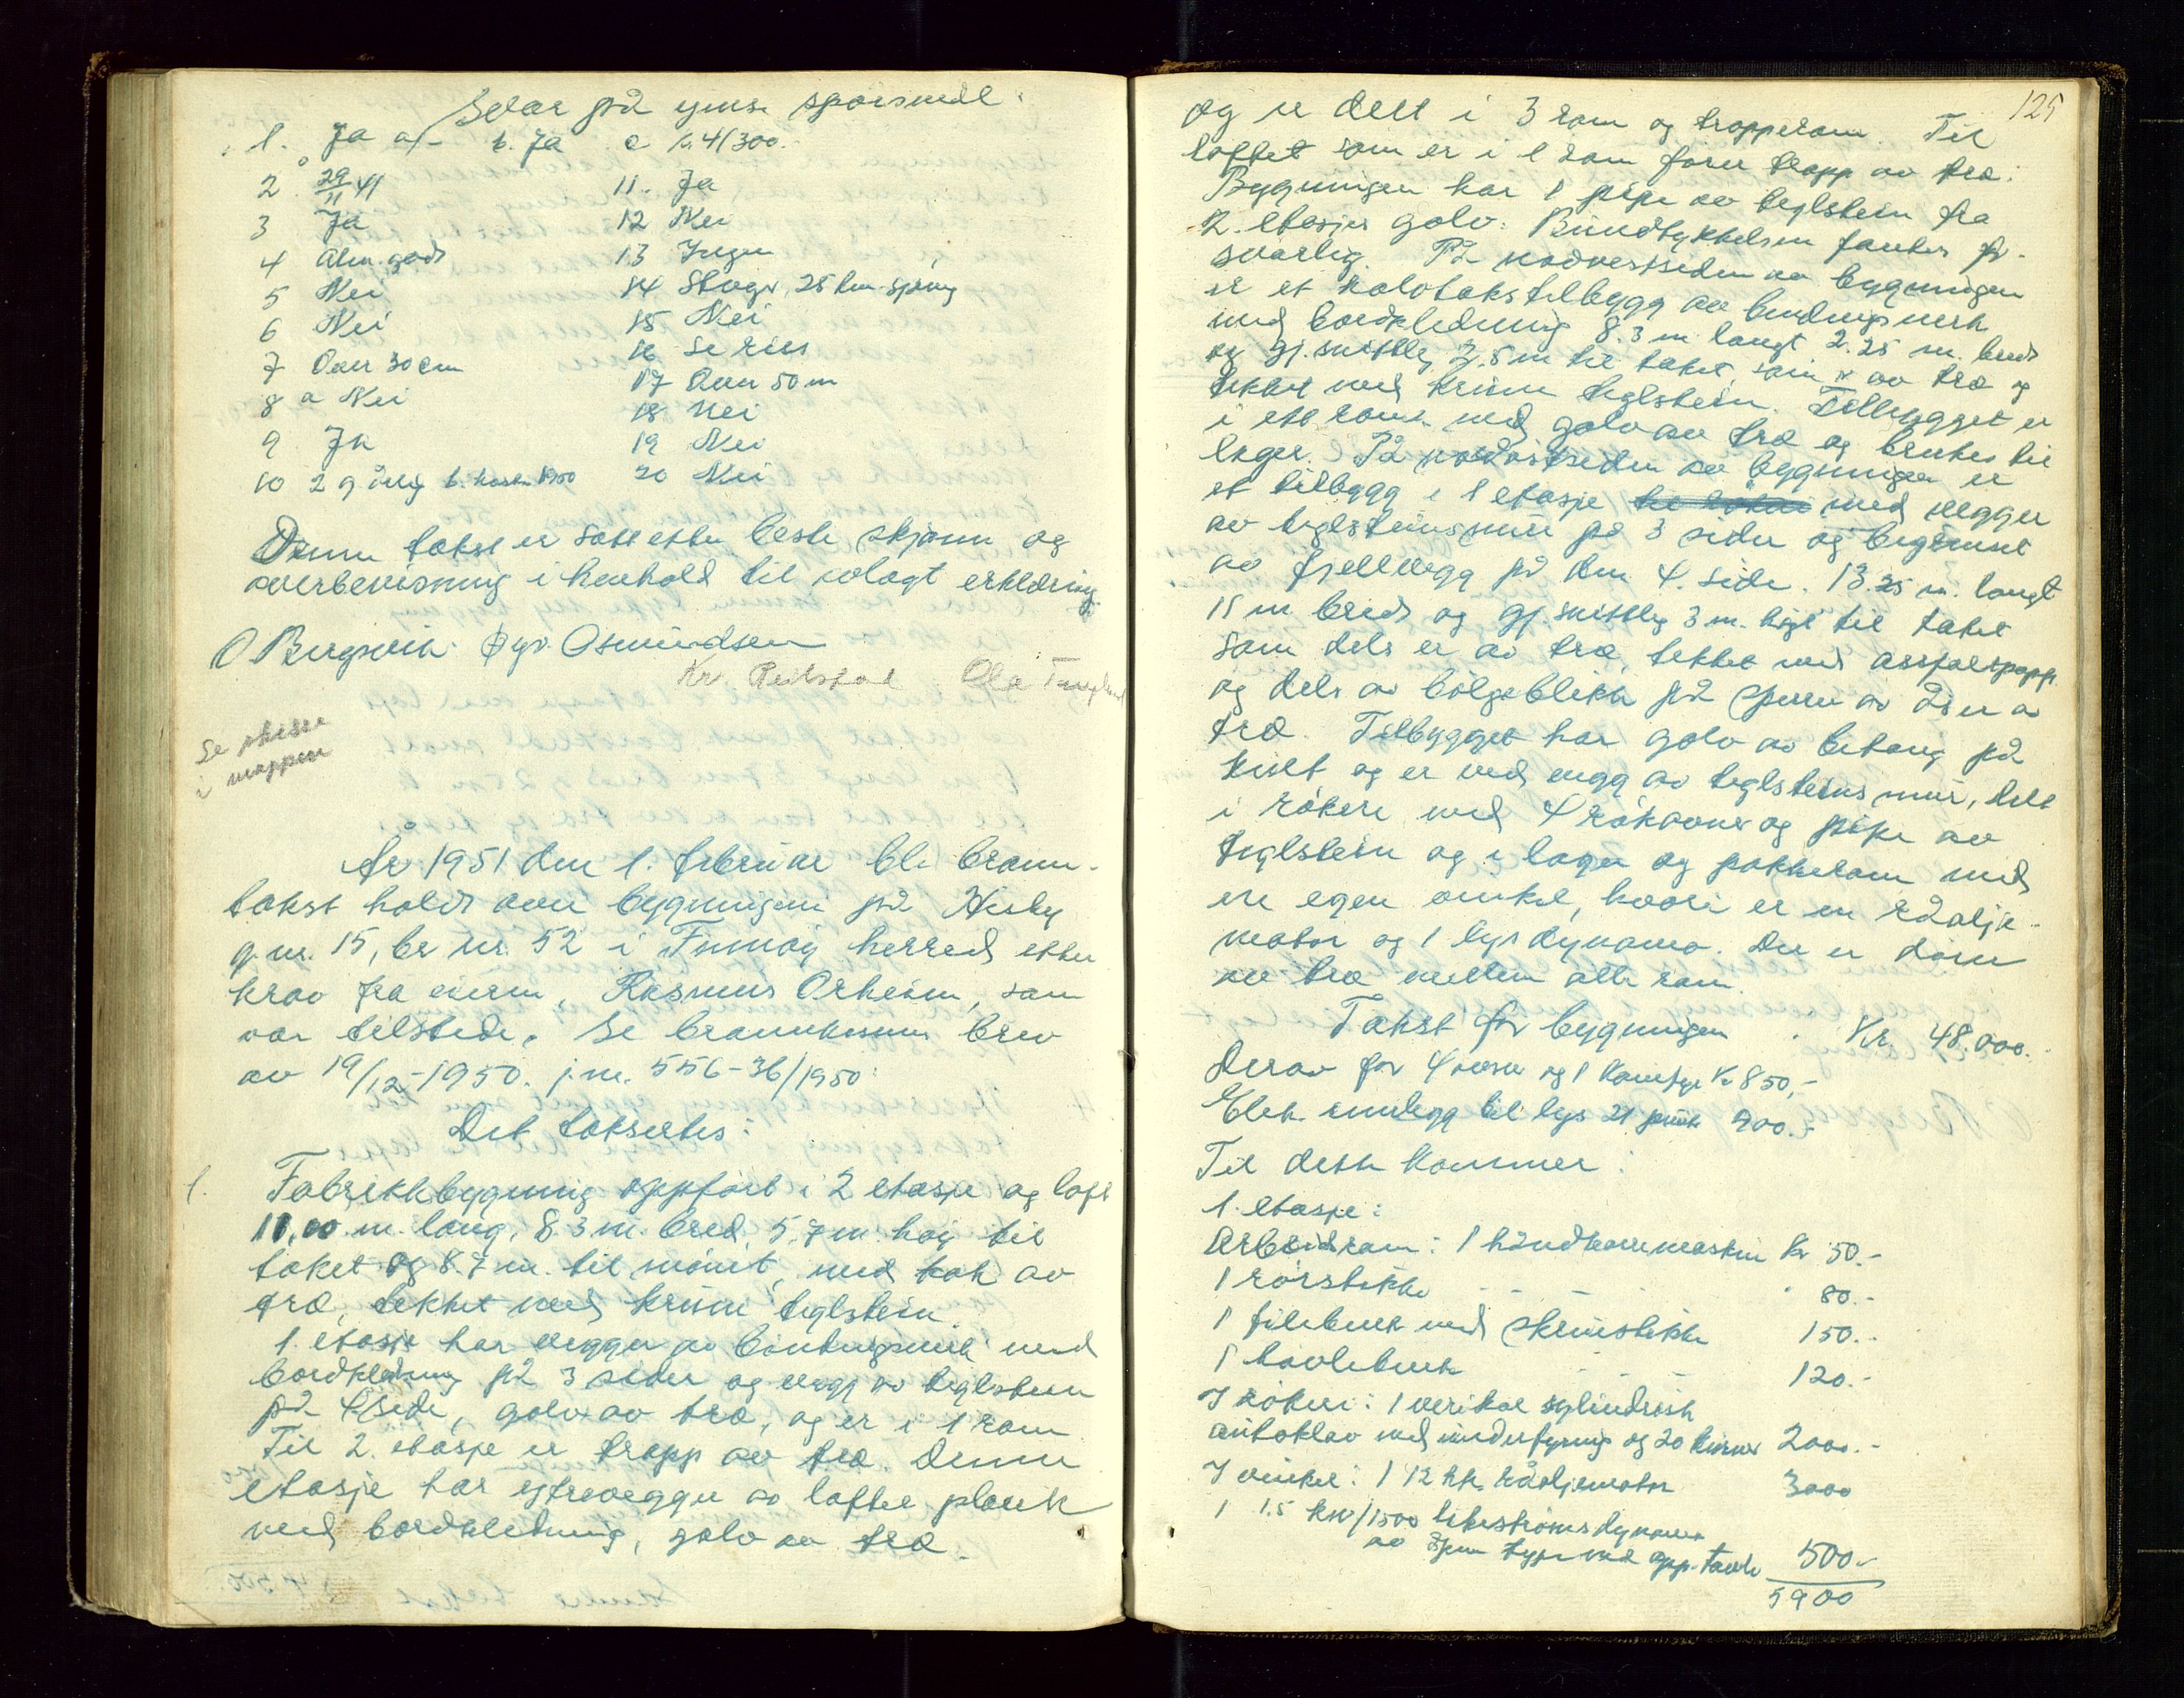 Svar på ymse spørsmål.
1. Ja a/- b. Ja c kr. 41300.-
2 29/11 41
3 Ja
4 Alm. god
5 Nei
6 Nei
7 Over 30 cm
8 a Nei
9 Ja
10 2 9 årlig b. høsten 1950
11. Ja
12 Nei
13 Ingen
14 Stuger, 25 km
15 Nei
16 Se riss
17 Over 50 m
18 Nei
19 Nei
20 Nei
Denne takst er satt etter beste skjønn og
overbevisning i henhold til avlagt erklæring.
O Bergsvik Øyv. Asmundsen
Kr. Reilstad Ola
Se skisse
i mappen
År 1951 den 1. februar ble brann-
takst holdt over bygningene på Hesby
g. nr. 15, br nr. 52 i Finnøy herred etter
krav fra eieren, Rasmus Orheim, som
var tilstede. Se brannkassens brev
av 19/12-1950. j.nr. 556-36/1950
Det taksertes:
1. Fabrikkbygning oppført i 2 etasje og loft
11,00 m. lang, 8.3 m. bred, 5.7 m. høy til
taket og 8.7 m. til mønet, med tak av
tre, tekket med krum teglstein.
1. etasje har vegger av bindingsverk med
bordkledning på 3 sider og vegg av teglstein
på 4 side, golv av tre, og er i 1 rom
Til 2. etasje er trapp av tre. Denne
etasje har yttervegger av laftet plank
med bordkledning, golv av tre
125
og er delt i 3 rom og trapperom. Til
loftet som er i 1 rom fører trapp av tre.
Bygningen har 1 pipe av teglstein fra
2. etasjes golv. Bunntykkelsen fantes for-
svarlig. På nordvestsiden av bygningen
er et halvtakstilbygg av bindingsverk
med bordkledning 8.3 m langt 2.25 m. bredt
og gj.snittlig 2.5 m til taket, som er av tre og
tekket med krum teglstein. Tilbygget er
i ett rom med golv av tre og brukes til
lager. På nordøstsiden av bygningen er
et tilbygg i 1 etasje med vegger
av teglsteinsmur på 3 sider og begrenset
av fjellvegg på den 4. side. 13.25 m. langt
11 m bredt og gj.snittlig 3 m. høgt til taket
som dels er av tre, tekket med asfaltpapp
og dels av bølgeblikk på sperrer av åser av
tre. Tilbygget har golv av betong på
kult og er ved vegg av teglsteinsmur, delt
i røkeri med 4 røkovner og pipe av
teglstein og i lager og pakkerom med
en egen vinkel, hvori er en råolje-
motor og 1 lysdynamo. Det er dører
av tre mellem alle rom.
Takst for bygningen . Kr. 48.000.
Derav for 4 ovner og 1 komfyr Kr 850,-
Elek. innlegg til lys 21 punkt 700.-
Til dette kommer:
1. etasje:
Arbeidsrom: 1 håndboremaskin Kr 50.-
1 rørstikke - - - 80.-
1 filebenk med skruestikke 150.-
1 høvlebenk - - 120.-
I røkeri: 1 vertikal sylindrisk
autoklav med underfyring og 20 kurver 2000.-
I vinkel: 1 12 hk. råoljemotor 3000
1 1.5 kw/1500 likestrøms dynamo
av åpen type med app. tavle 500.-
5900